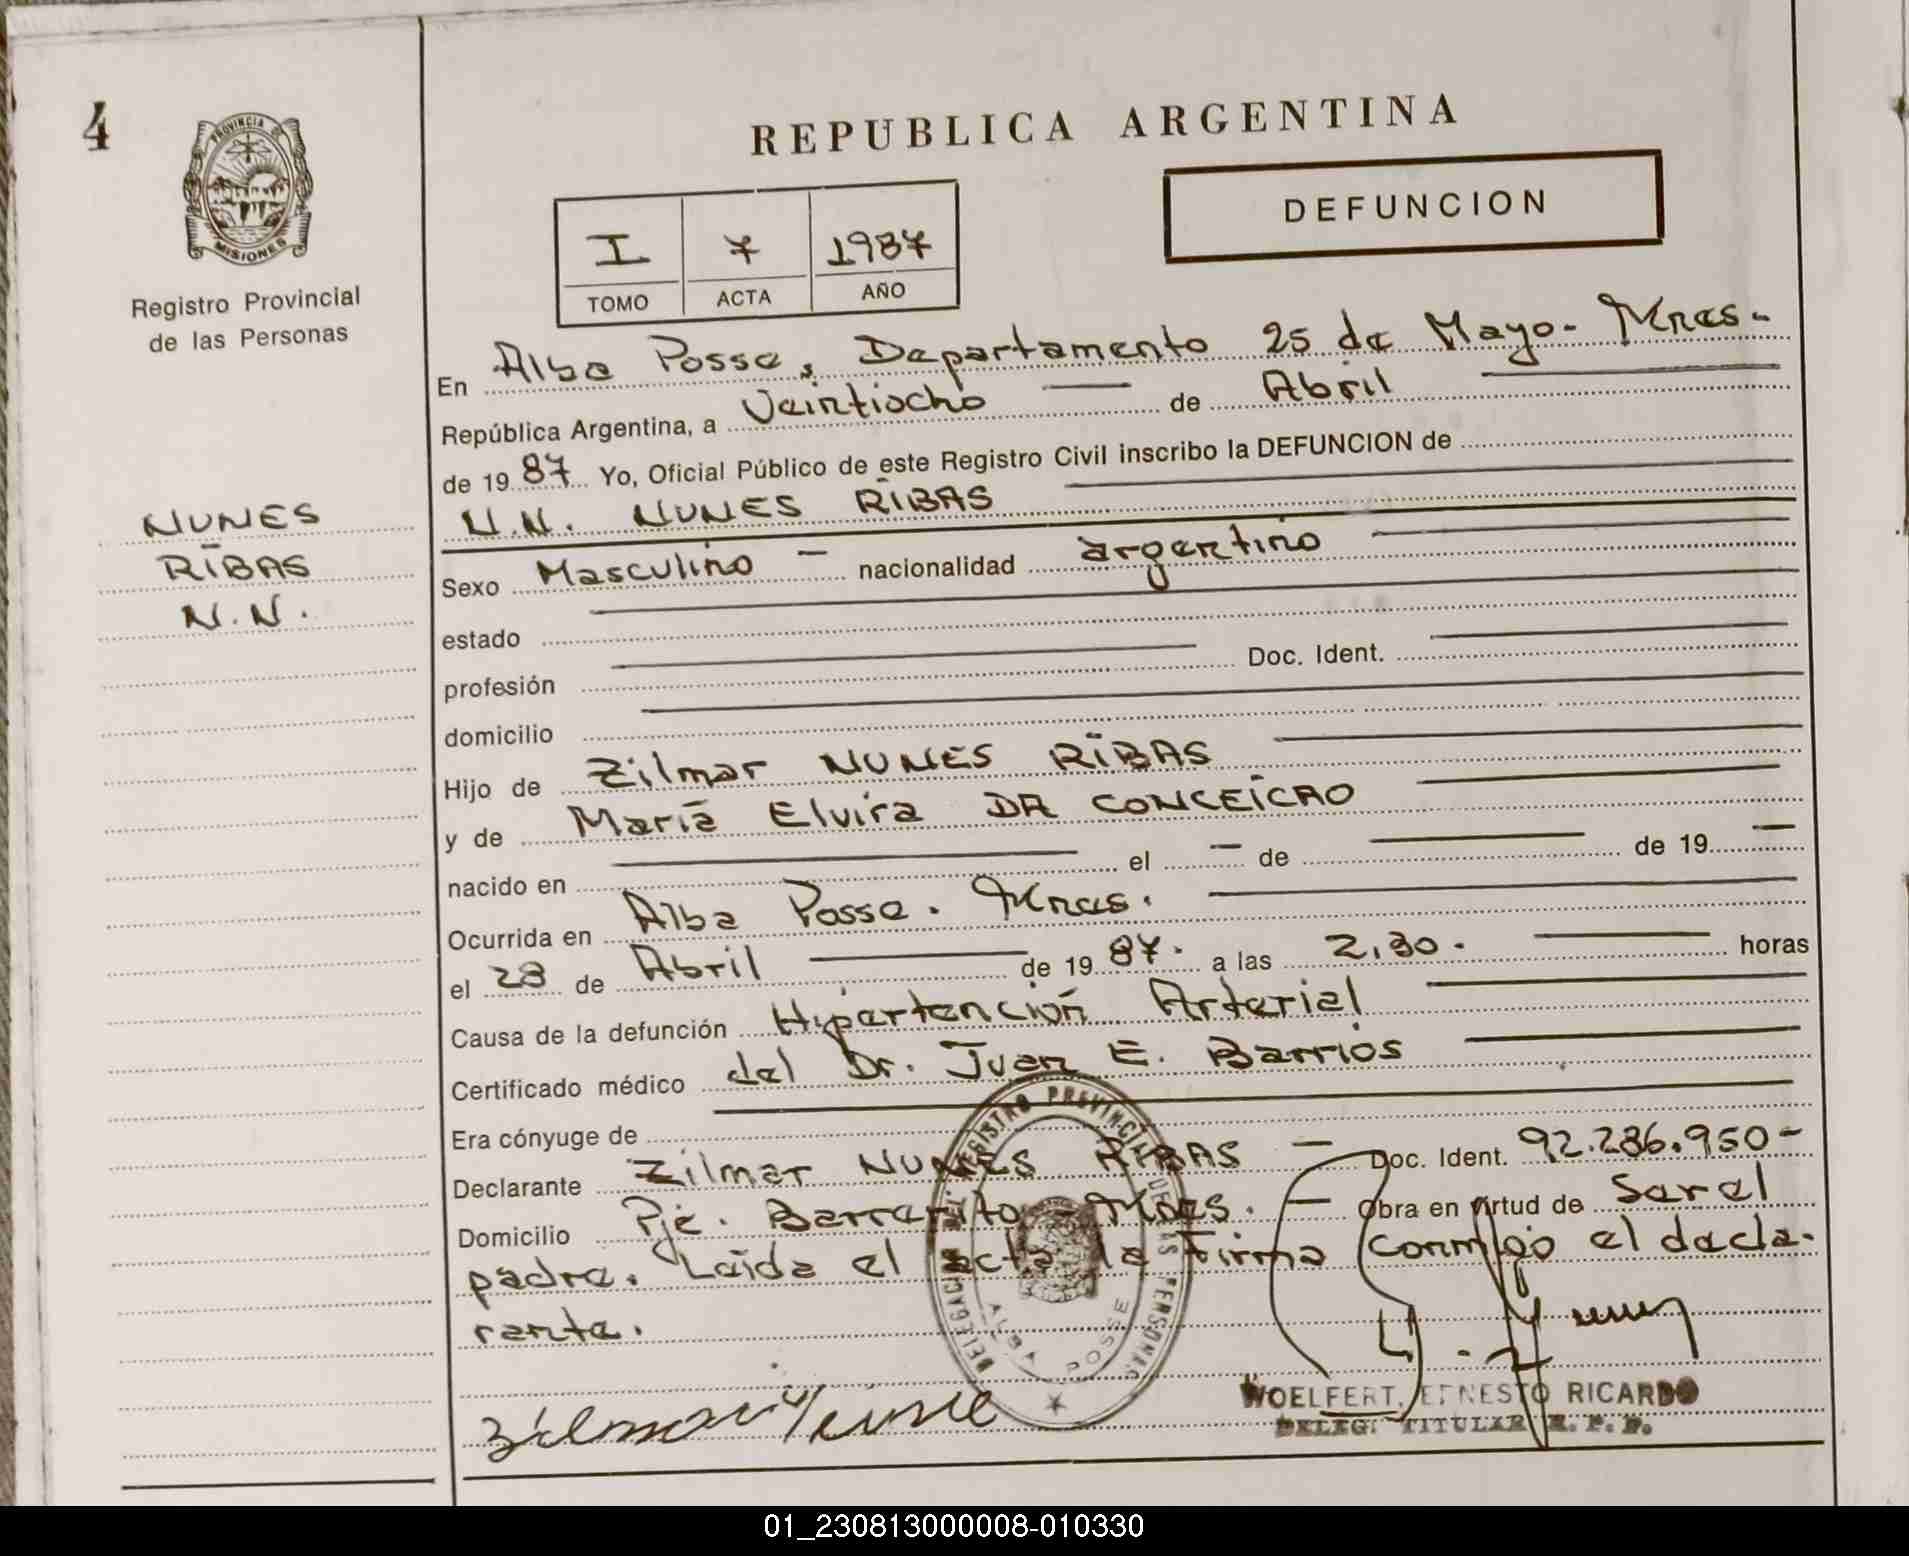 4
PROVINCIA DE
MISIONES
Registro Provincial
de las Personas
NUNES
RIBAS
N.N.
REPUBLICA ARGENTINA
I 7 1987
TOMO ACTA AÑO
DEFUNCION
En Alba Posse, Departamento 25 de Mayo- Mnes-
República Argentina, a Veintiocho — de Abril —
de 1987 Yo, Oficial Público de este Registro Civil inscribo la DEFUNCION de
N.N. NUNES RIBAS —
Sexo Masculino — nacionalidad argentino —
estado —
profesión — Doc. Ident. —
domicilio —
Hijo de Zilmar NUNES RIBAS —
y de María Elvira DA CONCEICAO —
nacido en — el — de — de 19 —
Ocurrida en Alba Posse. Mnes. —
el 28 de Abril — de 1987. a las 2,30. — horas
Causa de la defunción Hipertención Arterial —
Certificado médico del Dr. Juan E. Barrios —
Era cónyuge de —
Declarante Zilmar NUNES RIBAS — Doc. Ident. 92.286.950-
Domicilio Pje. Barrerito - Mnes. — Obra en virtud de Ser el
padre. Leida el acta la firma conmigo el decla-
rante.
DELEGACION DEL REGISTRO PROVINCIAL DE LAS PERSONAS
ALBA POSSE
WOELFERT, ERNESTO RICARDO
DELEG. TITULAR R. P. P.
01_230813000008-010330